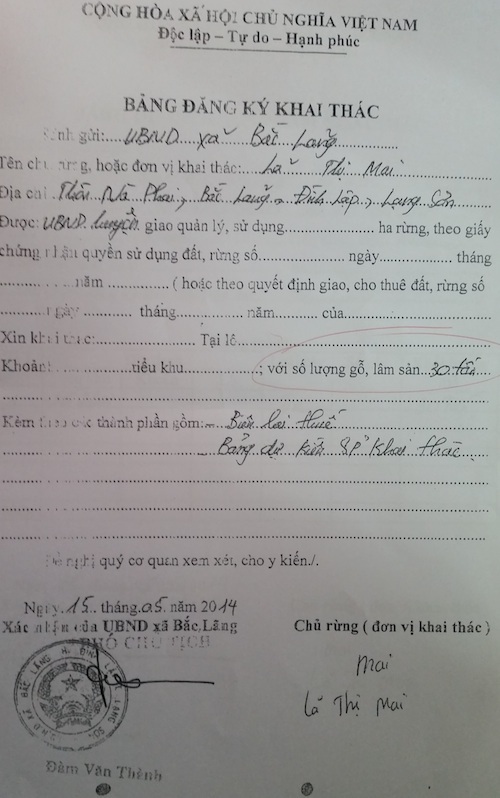 CỘNG HÒA XÃ HỘI CHỦ NGHĨA VIỆT NAM
Độc lập – Tự do – Hạnh phúc
BẢNG ĐĂNG KÝ KHAI THÁC
Kính gửi:.....UBND xã Bắc Lãng
Tên chủ rừng, hoặc đơn vị khai thác: Lã Thị Mai
Địa chỉ Thôn Nà Phai, Bắc Lãng - Đình Lập, Lạng Sơn
Được: UBND huyện giao quản lý, sử dụng..................... ha rừng, theo giấy
chứng nhận quyền sử dụng đất, rừng số...................... ngày............. tháng
.................... năm ............... ( hoặc theo quyết định giao, cho thuê đất, rừng số
............ngày ............. tháng.................. năm..............của.....................
Xin khai thác:......................... Tại lô..................................
Khoảnh...................tiểu khu......................; với số lượng gỗ, lâm sản...30 tấn....
Kèm theo các thành phần gồm:... Biên lai thuế
Bảng dự kiến SP khai thác
Đề nghị quý cơ quan xem xét, cho ý kiến./.
Ngày.15. tháng.05. năm 2014
Xác nhận của UBND xã Bắc Lãng
PHÓ CHỦ TỊCH
Chủ rừng ( đơn vị khai thác )
Mai
Lã Thị Mai
Đàm Văn Thành